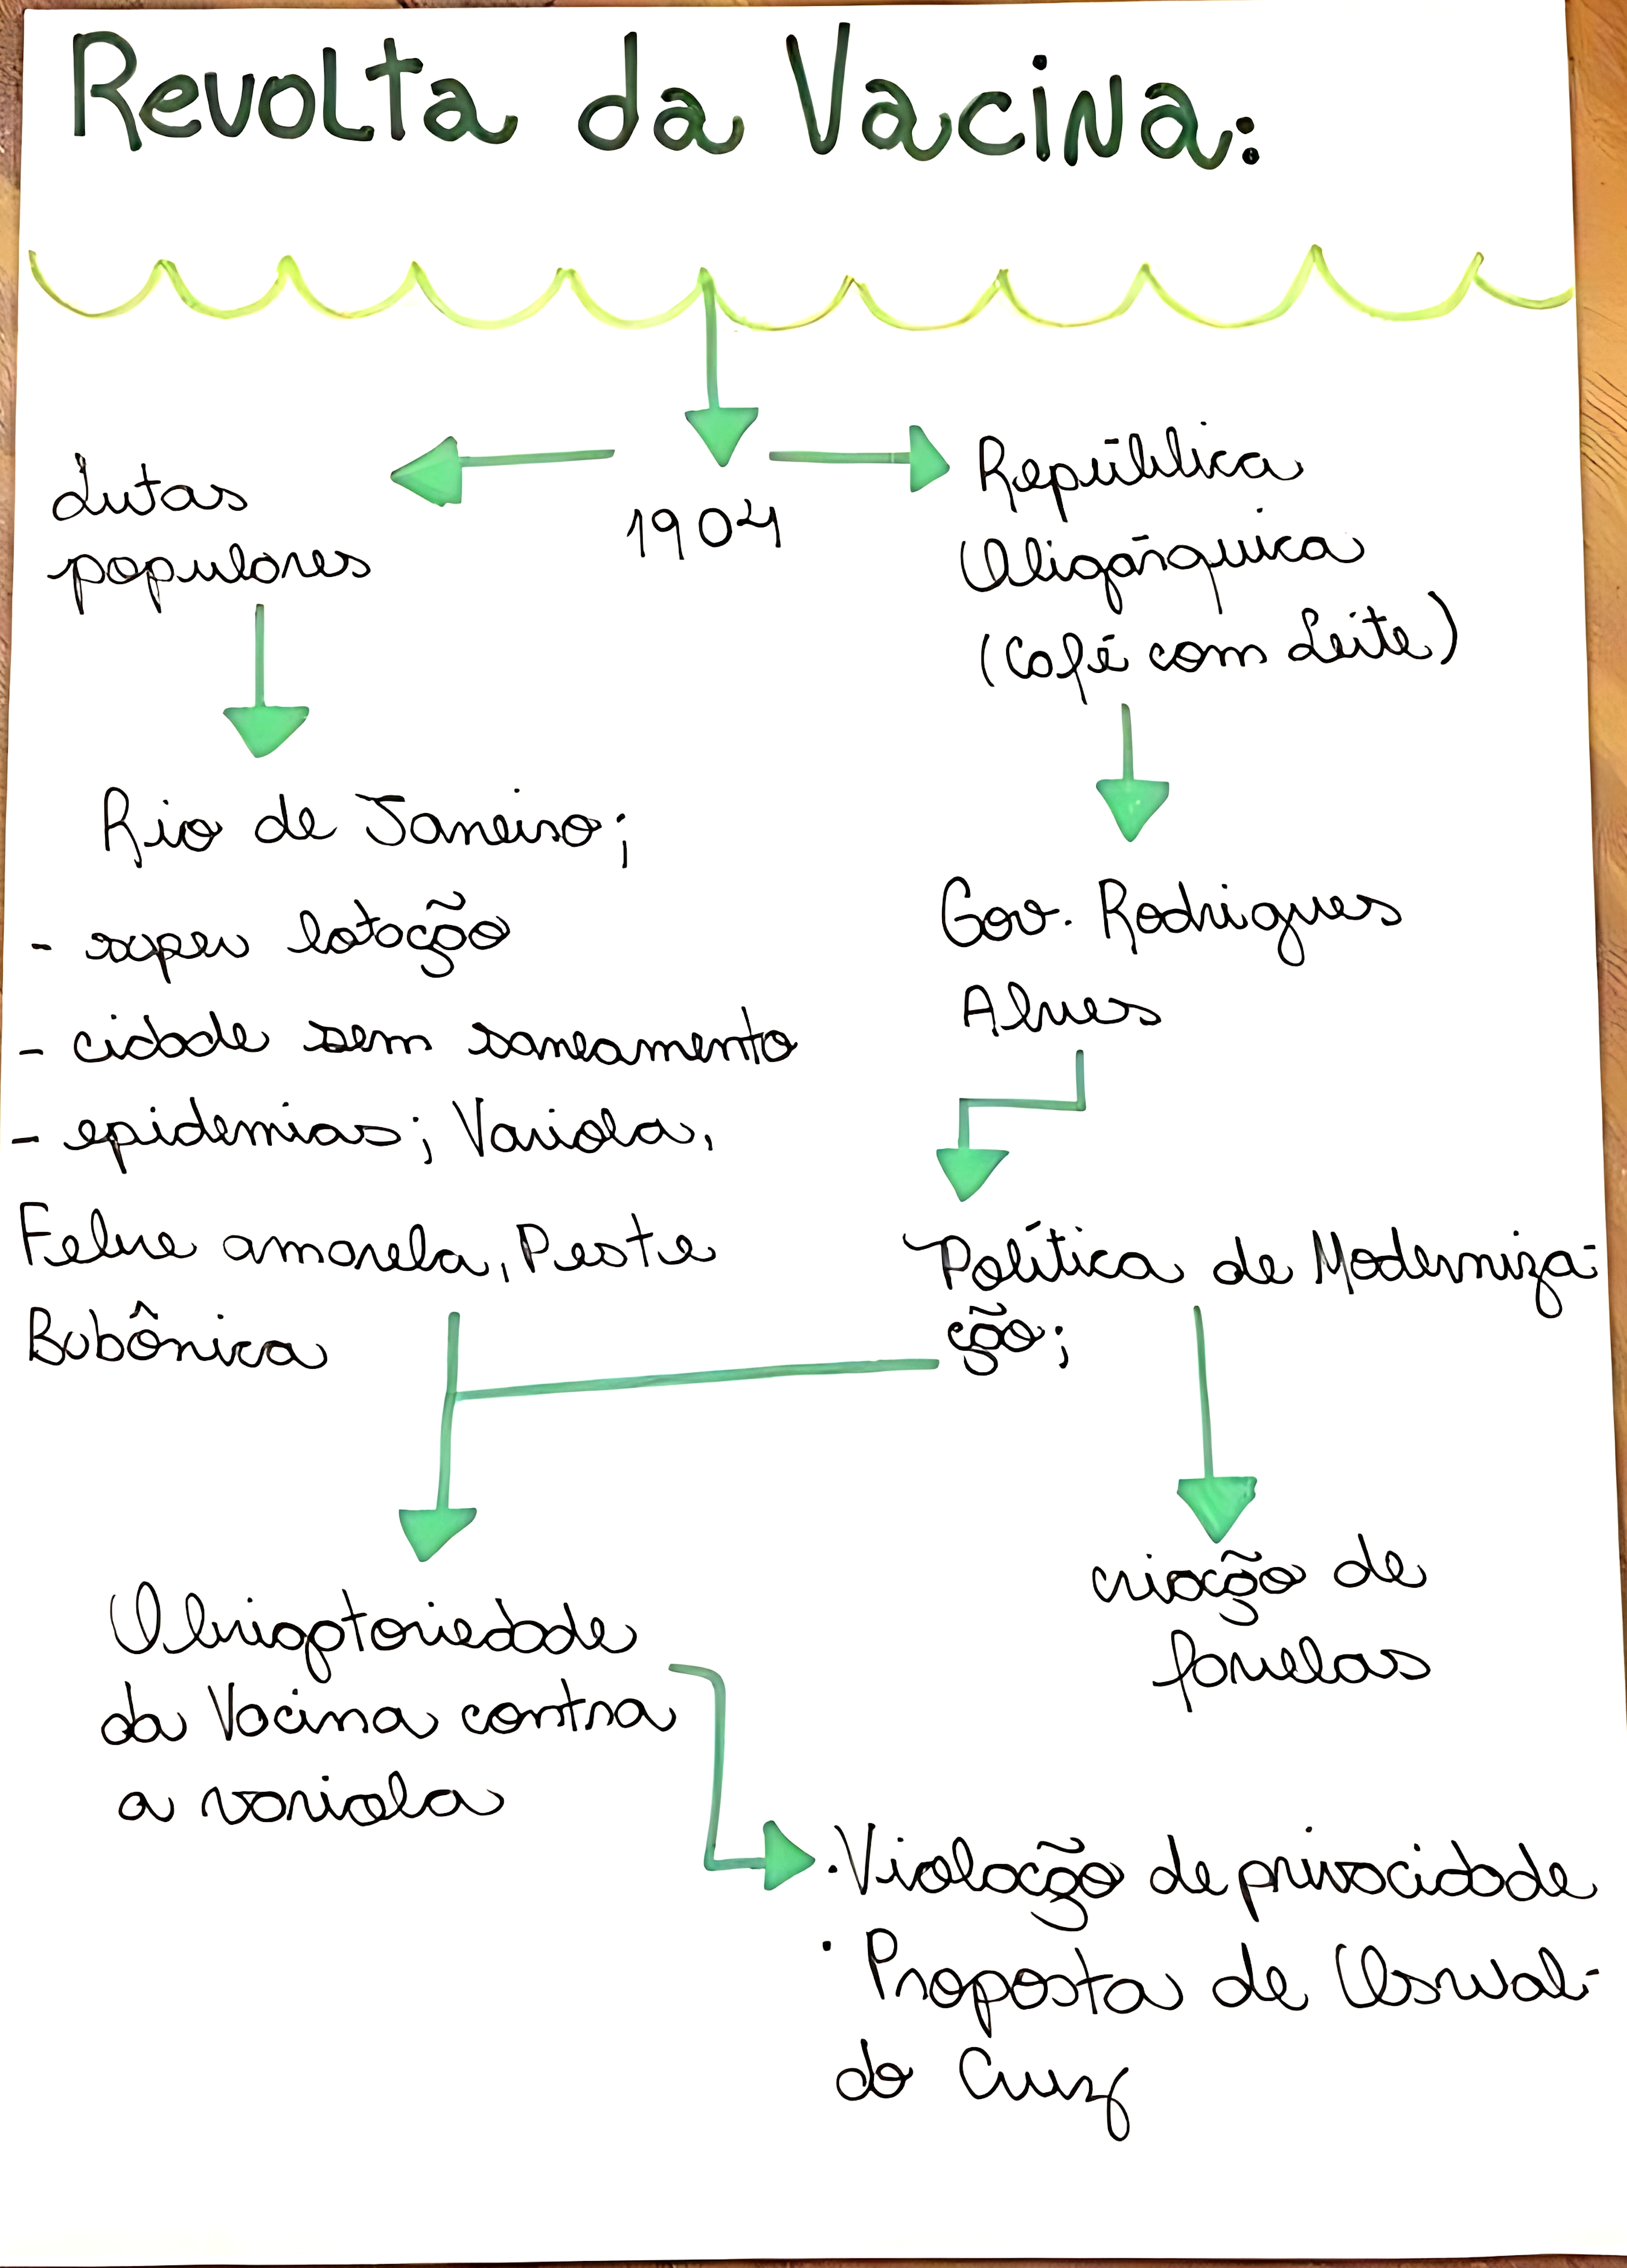 Revolta da Vacina:
1904
Lutas
populares
Rio de Janeiro;
- super lotação
- cidade sem saneamento
- epidemias; Varíola,
Febre amarela, Peste
Bubônica
República
Oligárquica
(Café com Leite)
Gov. Rodrigues
Alves
Política de Moderniza-
ção;
criação de
favelas
Obrigatoriedade
da Vacina contra
a varíola
·Violação de privacidade
· Proposta de Oswal-
do Cruz